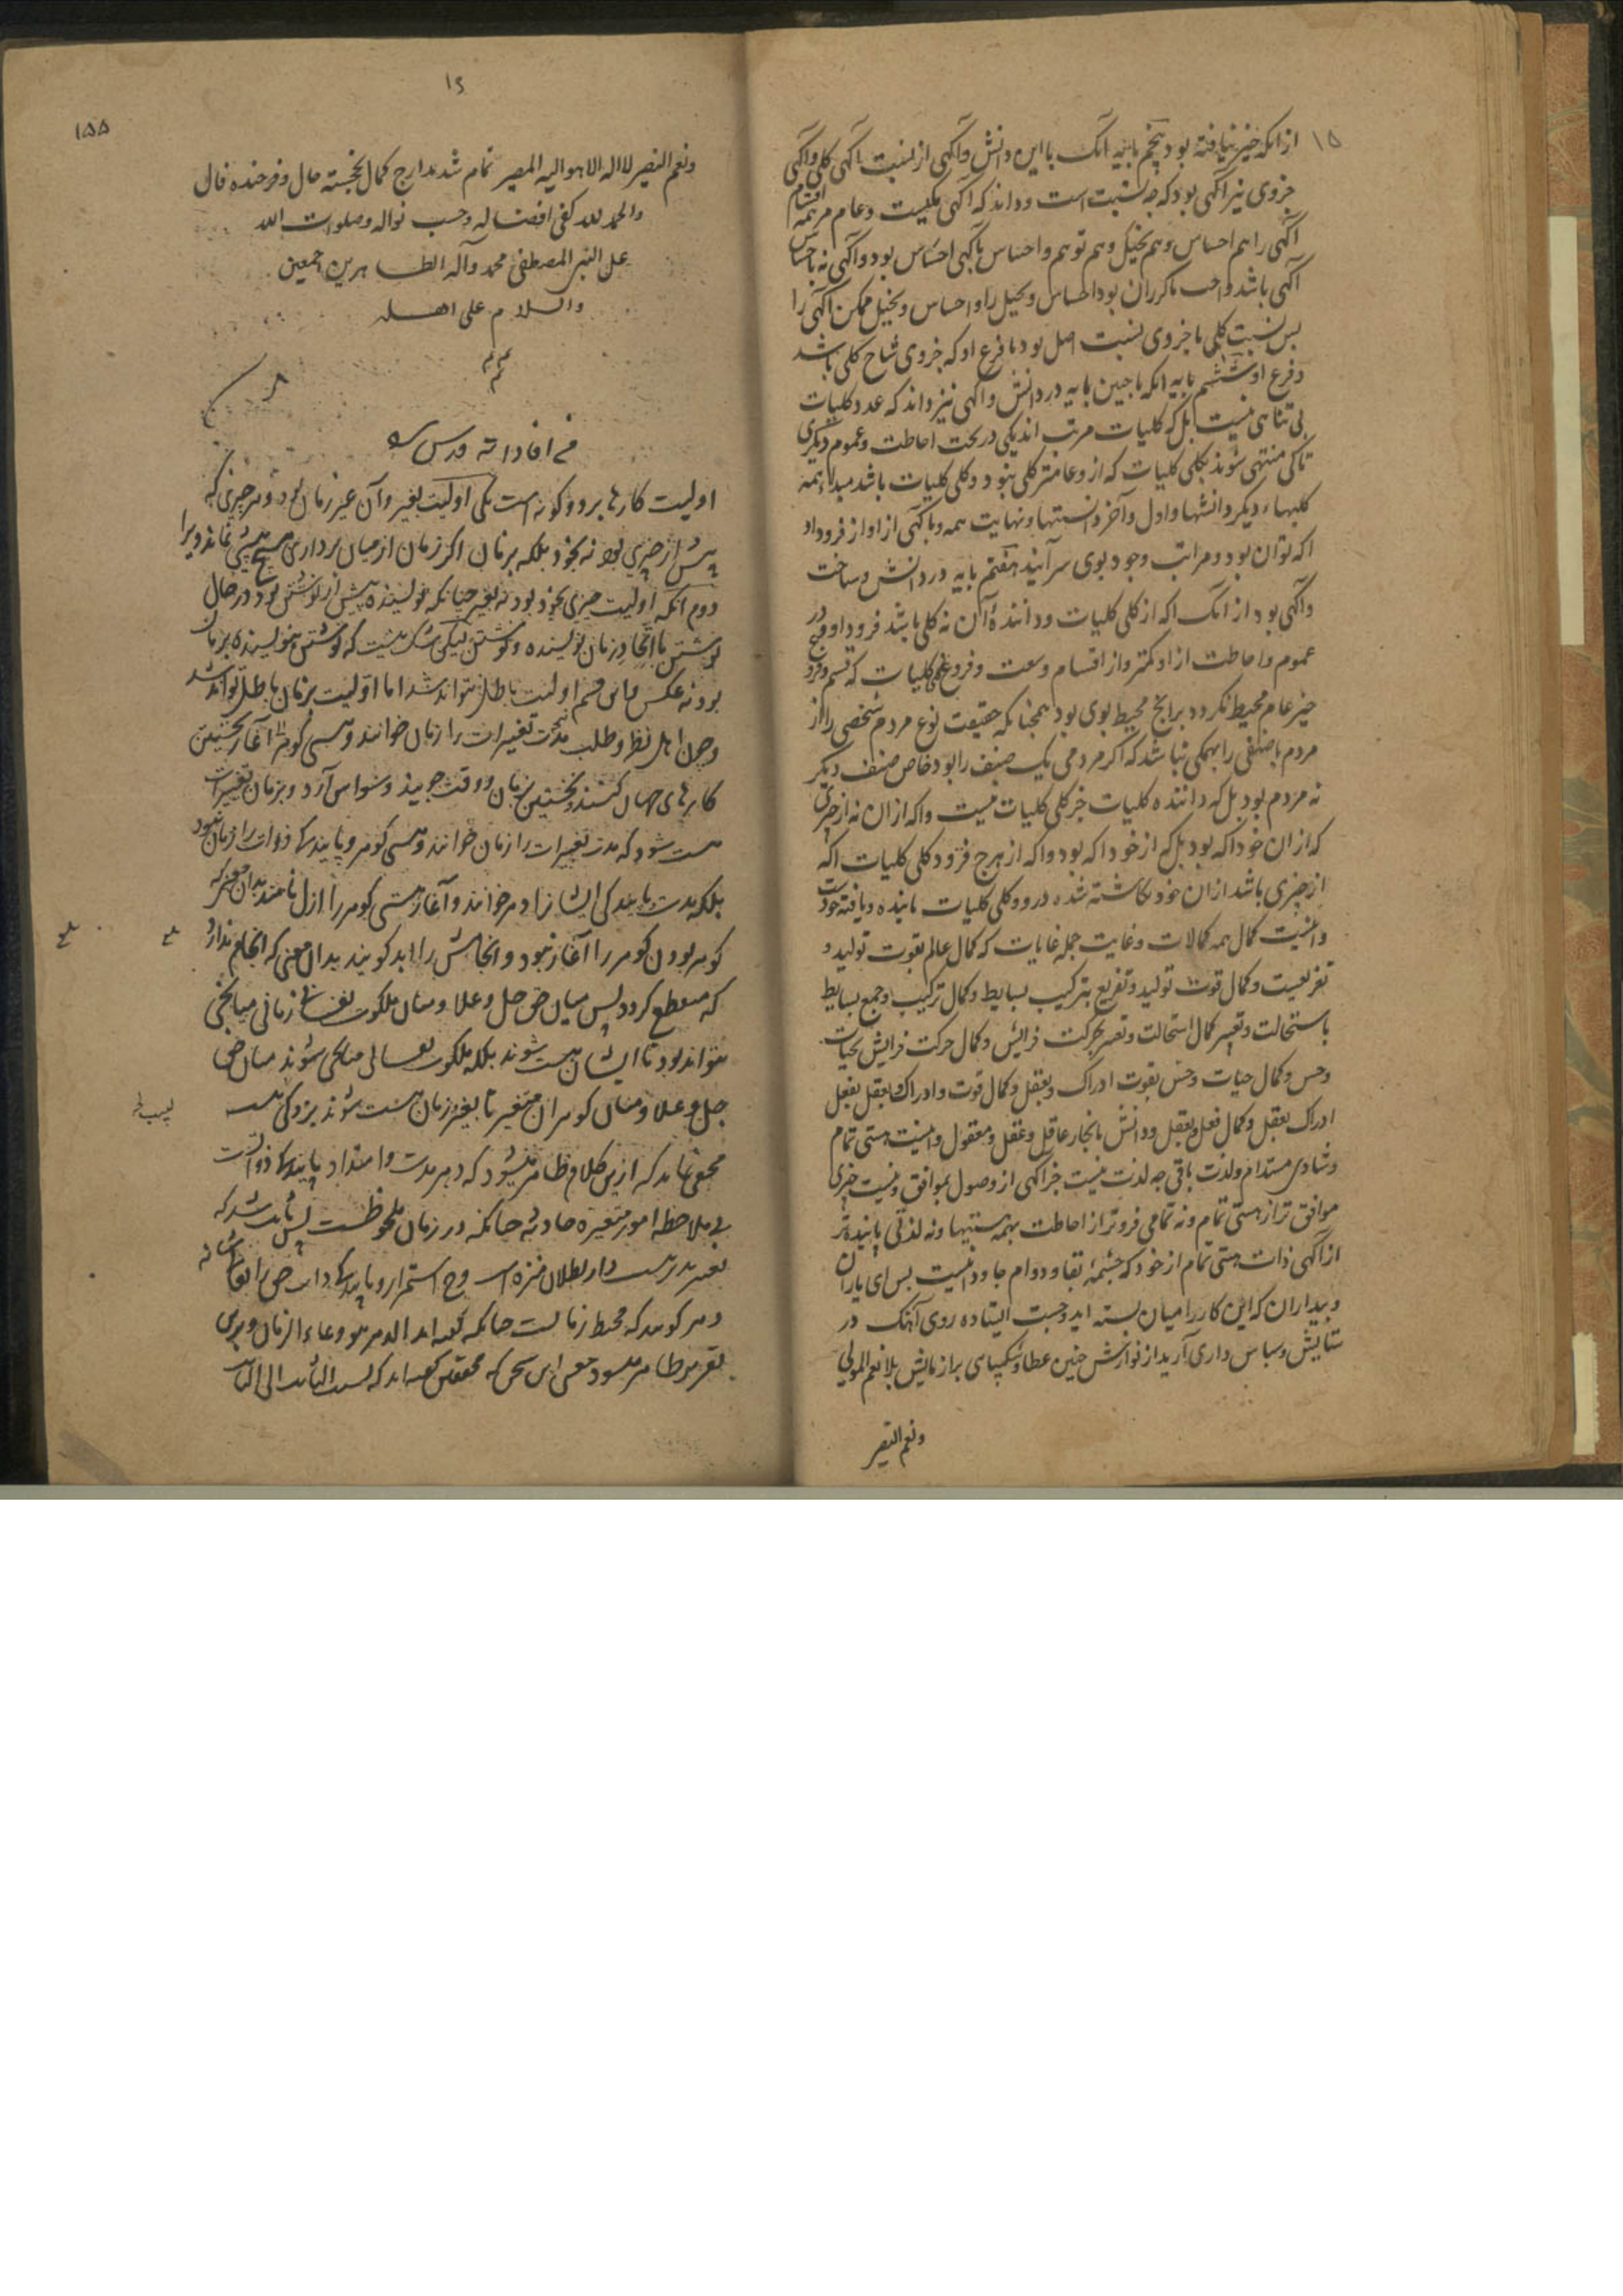 ۱۵
از آنکه خبر نیافته بود پنجم پایه آنک با این دانش و آگهی از نسبت آگهی کلی و آگهی
جزوی نیز آگهی بود که چه نسبت است و داند که آگهی کلیست و عام مر همه اقسام
آگهی را هم احساس و هم تخیل و هم توهم و احساس بآگهی احساس بود و آگهی نه باحساس
آگهی باشد و احساس و تخیل ممکن آگهی را
پس نسبت کلی با جزوی نسبت اصل بود با فرع او که جزوی شاخ کلی باشد
و فرع او ششم پایه آنکه با چنین پایه در دانش و آگهی نیز داند که عدد کلیات
بی تناهی نیست بل که کلیات مرتب اند یکی در تحت احاطت و عموم دیگری
تا کی منتهی شوند بکلی کلیات که ازو عامتر کلی نبود و کلی کلیات باشد مبداء همه
کلیهاء دیگر و دانشها و اول و آخر دانستها و نهایت همه و باگهی از او از فرود او
اگه توان بود و مراتب وجود بوی سرآیند هفتم پایه در دانش و ساخت
و آگهی بود از آنک اگه از کلی کلیات و دانندهٔ آن نه کلی باشد فرود او و در
عموم و احاطت از او کمتر و از اقسام وسعت و فروغ کلی کلیات که قسم و فروع
چیز عام محیط نگردد بر انج محیط بوی بود همچنانکه حقیقت نوع مردم شخصی را از
مردم یا صنفی را بهمگی نباشد که اگر مردمی یک صنف را بود خاص صنف دیگر
نه مردم بود بل که داننده کلیات جز کلی کلیات نیست و اگه از ان نه از چیزی
که از ان خود اگه بود بل که از خود اگه بود و اگه از هرچ فرود کلی کلیات اگه
از چیزی باشد از ان خود نگاشته شده درو و کلی کلیات یابنده و یافته خود است
و اینست کمال همه کمالات و غایت جمله غایات که کمال عالم بقوت تولید و
تفریعست و کمال قوت تولید و تفریع بترکیب بسایط و کمال ترکیب و جمع بسایط
باستحالت و تغییر و کمال استحالت و تغییر بحرکت فزایش و کمال حرکت فزایش بحیات
و حس و کمال حیات و حس بقوت ادراک و بعقل و کمال قوت و ادراک و بعقل بفعل
ادراک بعقل و کمال فعل بعقل و دانش باتحاد عاقل و عقل و معقول و اینست هستی تمام
و شادی مستدام و لذت باقی چه لذت نیست جز آگهی از وصول بموافق و نیست چیزی
موافق تر از هستی تمام و نه تمامی فروتر از احاطت بهمه هستیها و نه لذتی پاینده تر
از آگهی ذات هستی تمام از خود که چشمهٔ بقا و دوام جاودانیست پس ای یاران
و بیداران که این کار را میان بسته اید و چست ایستاده روی آهنگ در
ستایش و سپاس داری آرید از نوازش چنین عطا و شکیبائی بر آزمایش بلا نعم المولی
ونعم النصیر
۱۶
۱۵۵
ونعم النصیر لا اله الا هو الیه المصیر تمام شد مدارج کمال بخجسته حال و فرخنده فال
والحمد لله کفی افضاله و حسب نواله وصلوات الله
علی النبی المصطفی محمد وآله الطاهرین اجمعین
والسلام علی اهله
من افاداته قدس سره
اولیت کارها بر دو گونه است یکی اولیت بغیر و آن غیر زمان بود و هر چیزی که
پیش از چیزی بود نه بخود بلکه بزمان اگر زمان از میان برداری هیچ پیشی نماند و برا
دوم آنکه اولیت چیزی بخود بود نه بغیر چنانکه نویسنده پیش از نوشتن بود در حال
نوشتن با اتحاد زمان نویسنده و نوشتن لیکن شک نیست که نوشتن بنویسنده بر پا
بود نه عکس و این قسم اولیت باطل نتواند شد اما اولیت بزمان باطل تواند شد
و چون اهل نظر و طلب مدت تغییرات را زمان خوانند و هستی گوهر را آغاز نخستین
کارهای جهان گفتند و نخستین زمان و وقت جویند وسواس آرد و بزمان تغییرات
هست شود که مدت تغییرات را زمان خوانند و هستی گوهر و پایندگی ذوات را زمان نبود
بلکه مدت پایندگی ایشانرا دهر خوانند و آغاز هستی گوهر را ازل نامند بدان معنی که
گوهر بودن گوهر را آغاز نبود و انجامش را ابد گویند بدان معنی که انجام ندارد
که منقطع گردد پس میان حق جل و علا و میان ملکوت نفسانی زمانی میانجی
نتواند بود تا ایشان هست شوند بلکه ملکوت نفسانی میانجی شوند میان حق
جل و علا و میان گوهران متغیر تا بغیر زمان هست شوند بزودگی
مخفی نماند که ازین کلام ظاهر میشود که دهر مدت و امتداد پایندگی ذواتست
بی ملاحظه امور متغیره حادثه چنانکه در زمان ملحوظست پس ثابت شد که
و دهر گویند که محیط زمانست چنانکه گفته اند الدهر هو وعاء الزمان و برین
تقریر ظاهر میشود معنی این سخن که محققین گفته اند که نسبت الثابت الی الثابت